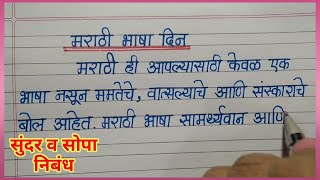 मराठी भाषा दिन
मराठी ही आपल्यासाठी केवळ एक
भाषा नसून ममतेचे, वात्सल्याचे आणि संस्काराचे
बोल आहेत. मराठी भाषा सामर्थ्यवान आणि
सुंदर व सोपा
निबंध